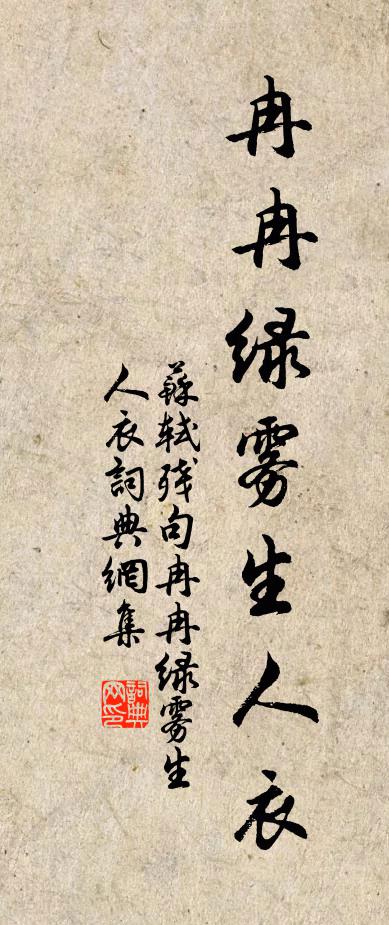 冉冉绿雾生人衣
蘇軾残句冉冉绿雾生
人衣詞典網集
詞典网印